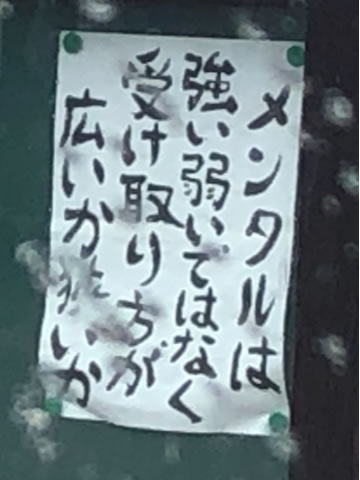 メンタルは
強い弱いではなく
受け取り方が
広いか狭いか